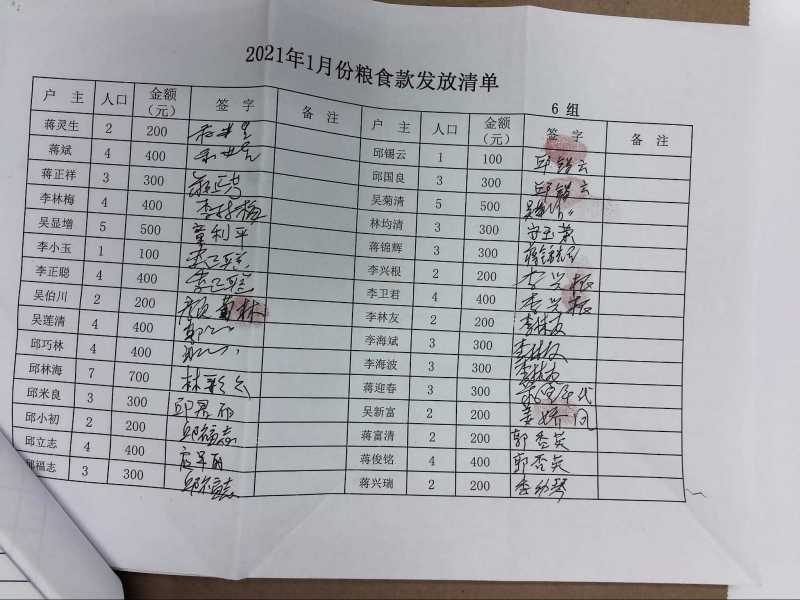 2021年1月份粮食款发放清单
6 组
户 主 人口 金额（元） 签 字 备 注 户 主 人口 金额（元） 签 字 备 注
蒋灵生 2 200 邱锡云 1 100 邱锴云
蒋斌 4 400 邱国良 3 300 邱锴云
蒋正祥 3 300 蒋正祥 吴菊清 5 500
李林梅 4 400 李林梅 林均清 3 300
吴显增 5 500 童利平 蒋锦辉 3 300
李小玉 1 100 李正聪 李兴根 2 200 李兴根
李正聪 4 400 李正聪 李卫君 4 400 李兴根
吴伯川 2 200 颜菊林 李林友 2 200 李林友
吴莲清 4 400 李海斌 3 300 李林友
邱巧林 4 400 李海波 3 300 李林友
邱林海 7 700 林彩云 蒋迎春 3 300
邱米良 3 300 吴新富 2 200 姜娇凤
邱小初 2 200 邱福志 蒋富清 2 200 郭香英
邱立志 4 400 蒋俊铭 4 400 郭香英
邱福志 3 300 邱福志 蒋兴瑞 2 200 季幼琴